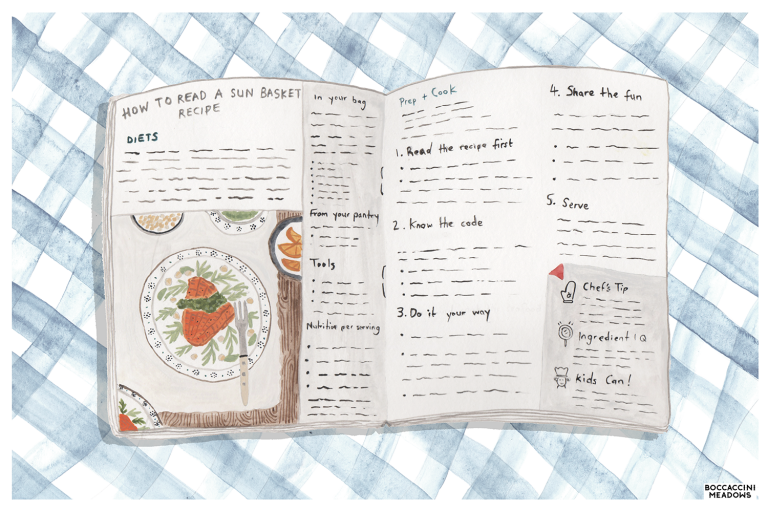 HOW TO READ A SUN BASKET
RECIPE
DIETS
In your bag
From your pantry
Tools
Nutritive per serving
Prep + Cook
1. Read the recipe first
2. Know the code
3. Do it your way
4. Share the fun
5. Serve
Chef's Tip
Ingredient IQ
Kids Can!
BOCCACCINI
MEADOWS